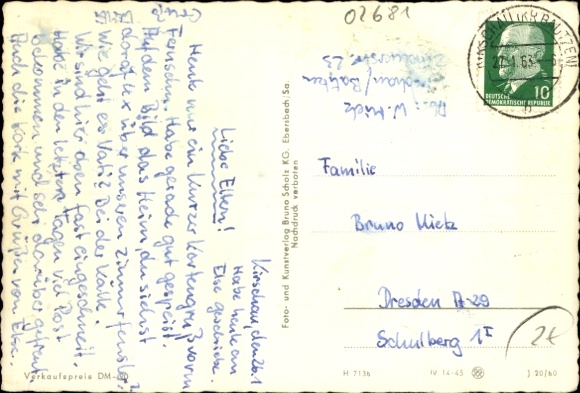 02681
KIRSCHAU (KR BAUTZEN)
27.1.63
b
DEUTSCHE
DEMOKRATISCHE REPUBLIK
10
W. Mietz
Kirschau/Bautzen
23
Familie
Bruno Mietz
Dresden A-29
Schulberg 1 I
2€
Kirschau, den 26.1
Habe heute an
Else geschrieben.
Liebe Eltern!
Heute nur ein kurzer Kartengruß vorm
Fernsehn. Habe gerade gut gespeist.
Auf dem Bild das Heim, du siehst
darauf x über unserem Zimmerfenster.
Wie geht es Vati? Bei der Kälte.
Wir sind hier oben fast eingeschneit.
Habe in den letzten Tagen viel Post
bekommen und sehr darüber gefreut.
Auch die Karte mit Grüßen von Else.
Foto- und Kunstverlag Bruno Scholz KG. Ebersbach/Sa.
Nachdruck verboten
Verkaufspreis DM
H 7136
IV-14-45
J 20/60